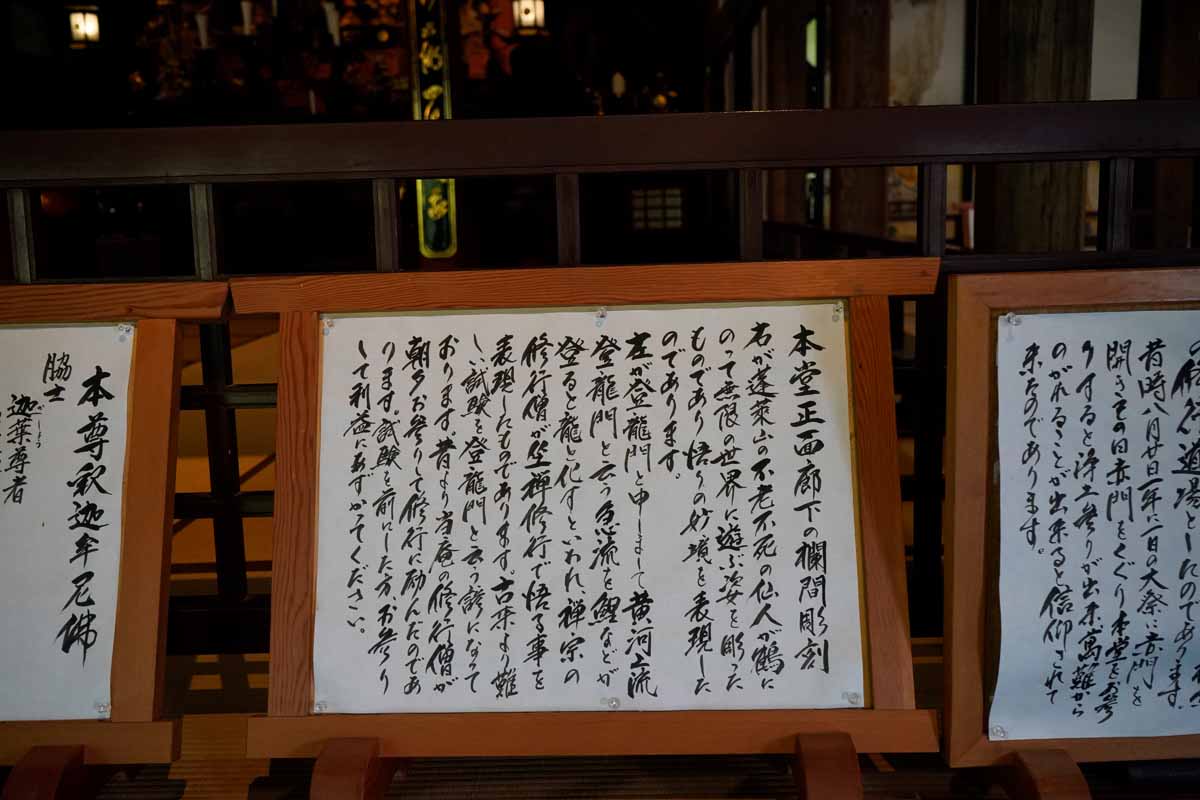 の修行道場としたのであります。
昔時八月廿日一年に一日の大祭に赤門を
開きその日赤門をくぐり本堂をお参
りすると浄土参りが出来萬難から
のがれることが出来ると信仰されて
来たのであります。
本堂正面廊下の欄間彫刻
右が蓬萊山の不老不死の仙人が鶴に
のって無限の世界に遊ぶ姿を彫った
ものであり悟りの妙境を表現した
のであります。
左が登龍門と申しまして黄河上流
登龍門と云う急流を鯉などが
登ると龍と化すといわれ、禅宗の
修行僧が坐禅修行で悟る事を
表現したものであります。古来より難
しい試験を登龍門と云う諺になって
おります。昔より当庵の修行僧が
朝夕お参りして修行に励んだのであ
ります。試験を前にした方お参り
して利益にあずかてください。
本尊釈迦牟尼佛
脇士
迦葉尊者